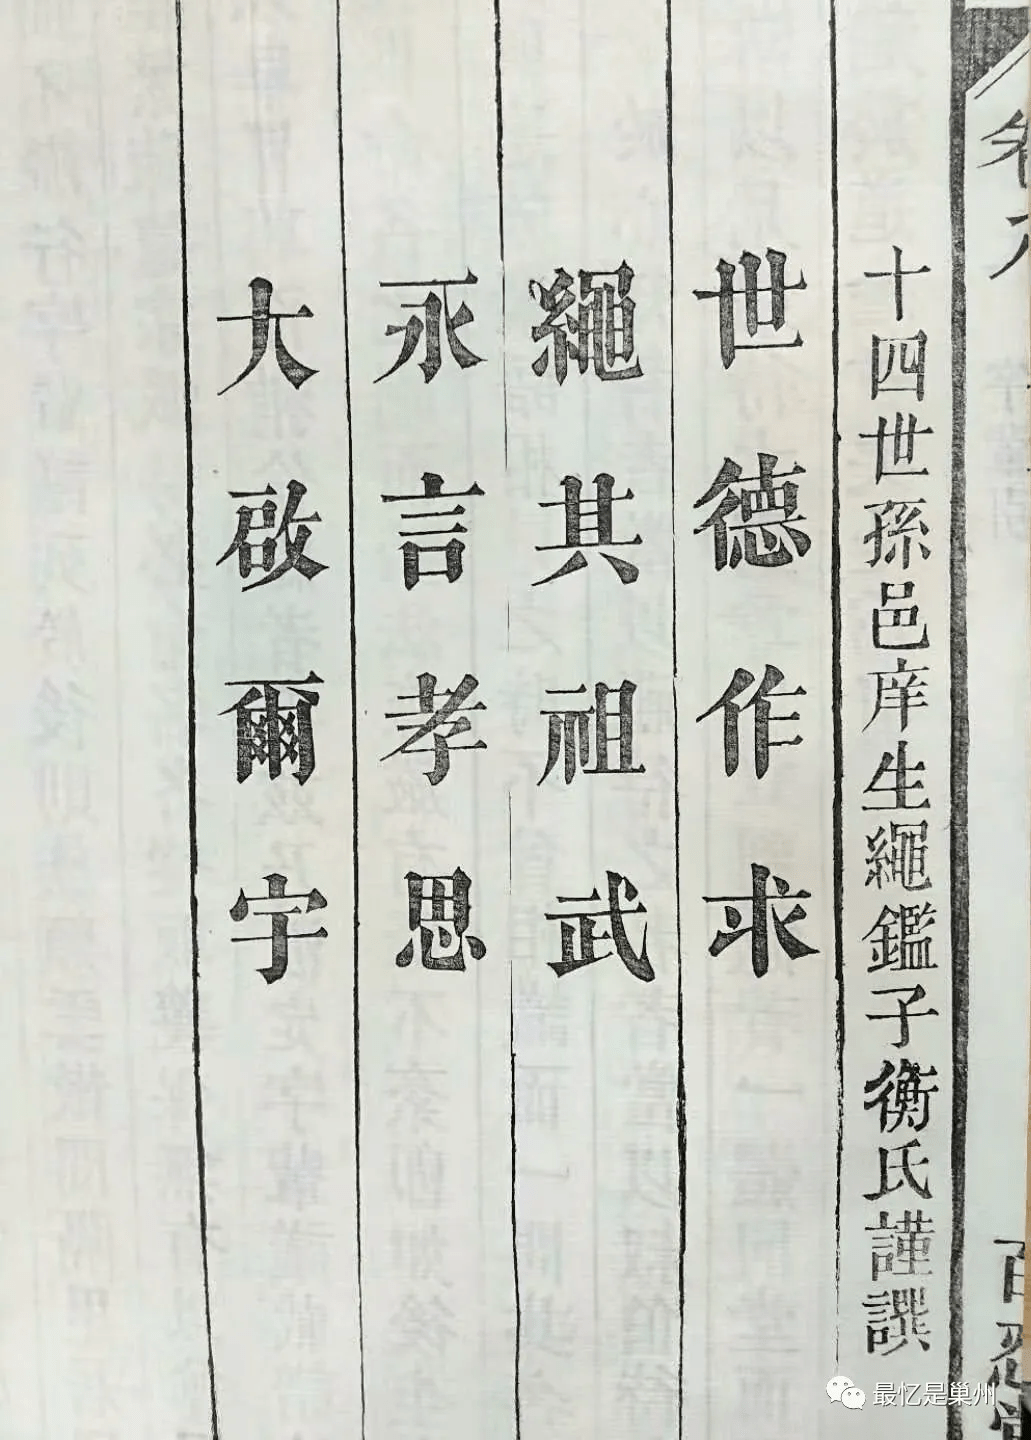 十四世孫邑庠生繩鑑子衡氏謹譔
世德作求
繩其祖武
永言孝思
大啟爾宇
百忍堂
最忆是巢州